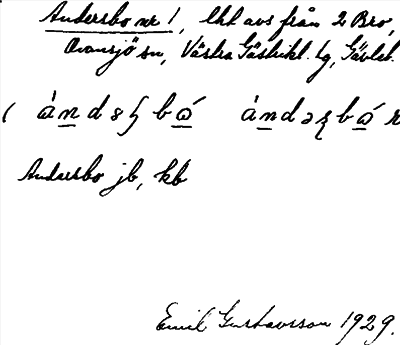 Andersbo nr 1, lht avs från 2 Bro,
Ovansjö sn, Västra Gästrikl. tg, Gävleb.
Andersbo jb, kb
Emil Gustavsson 1929.